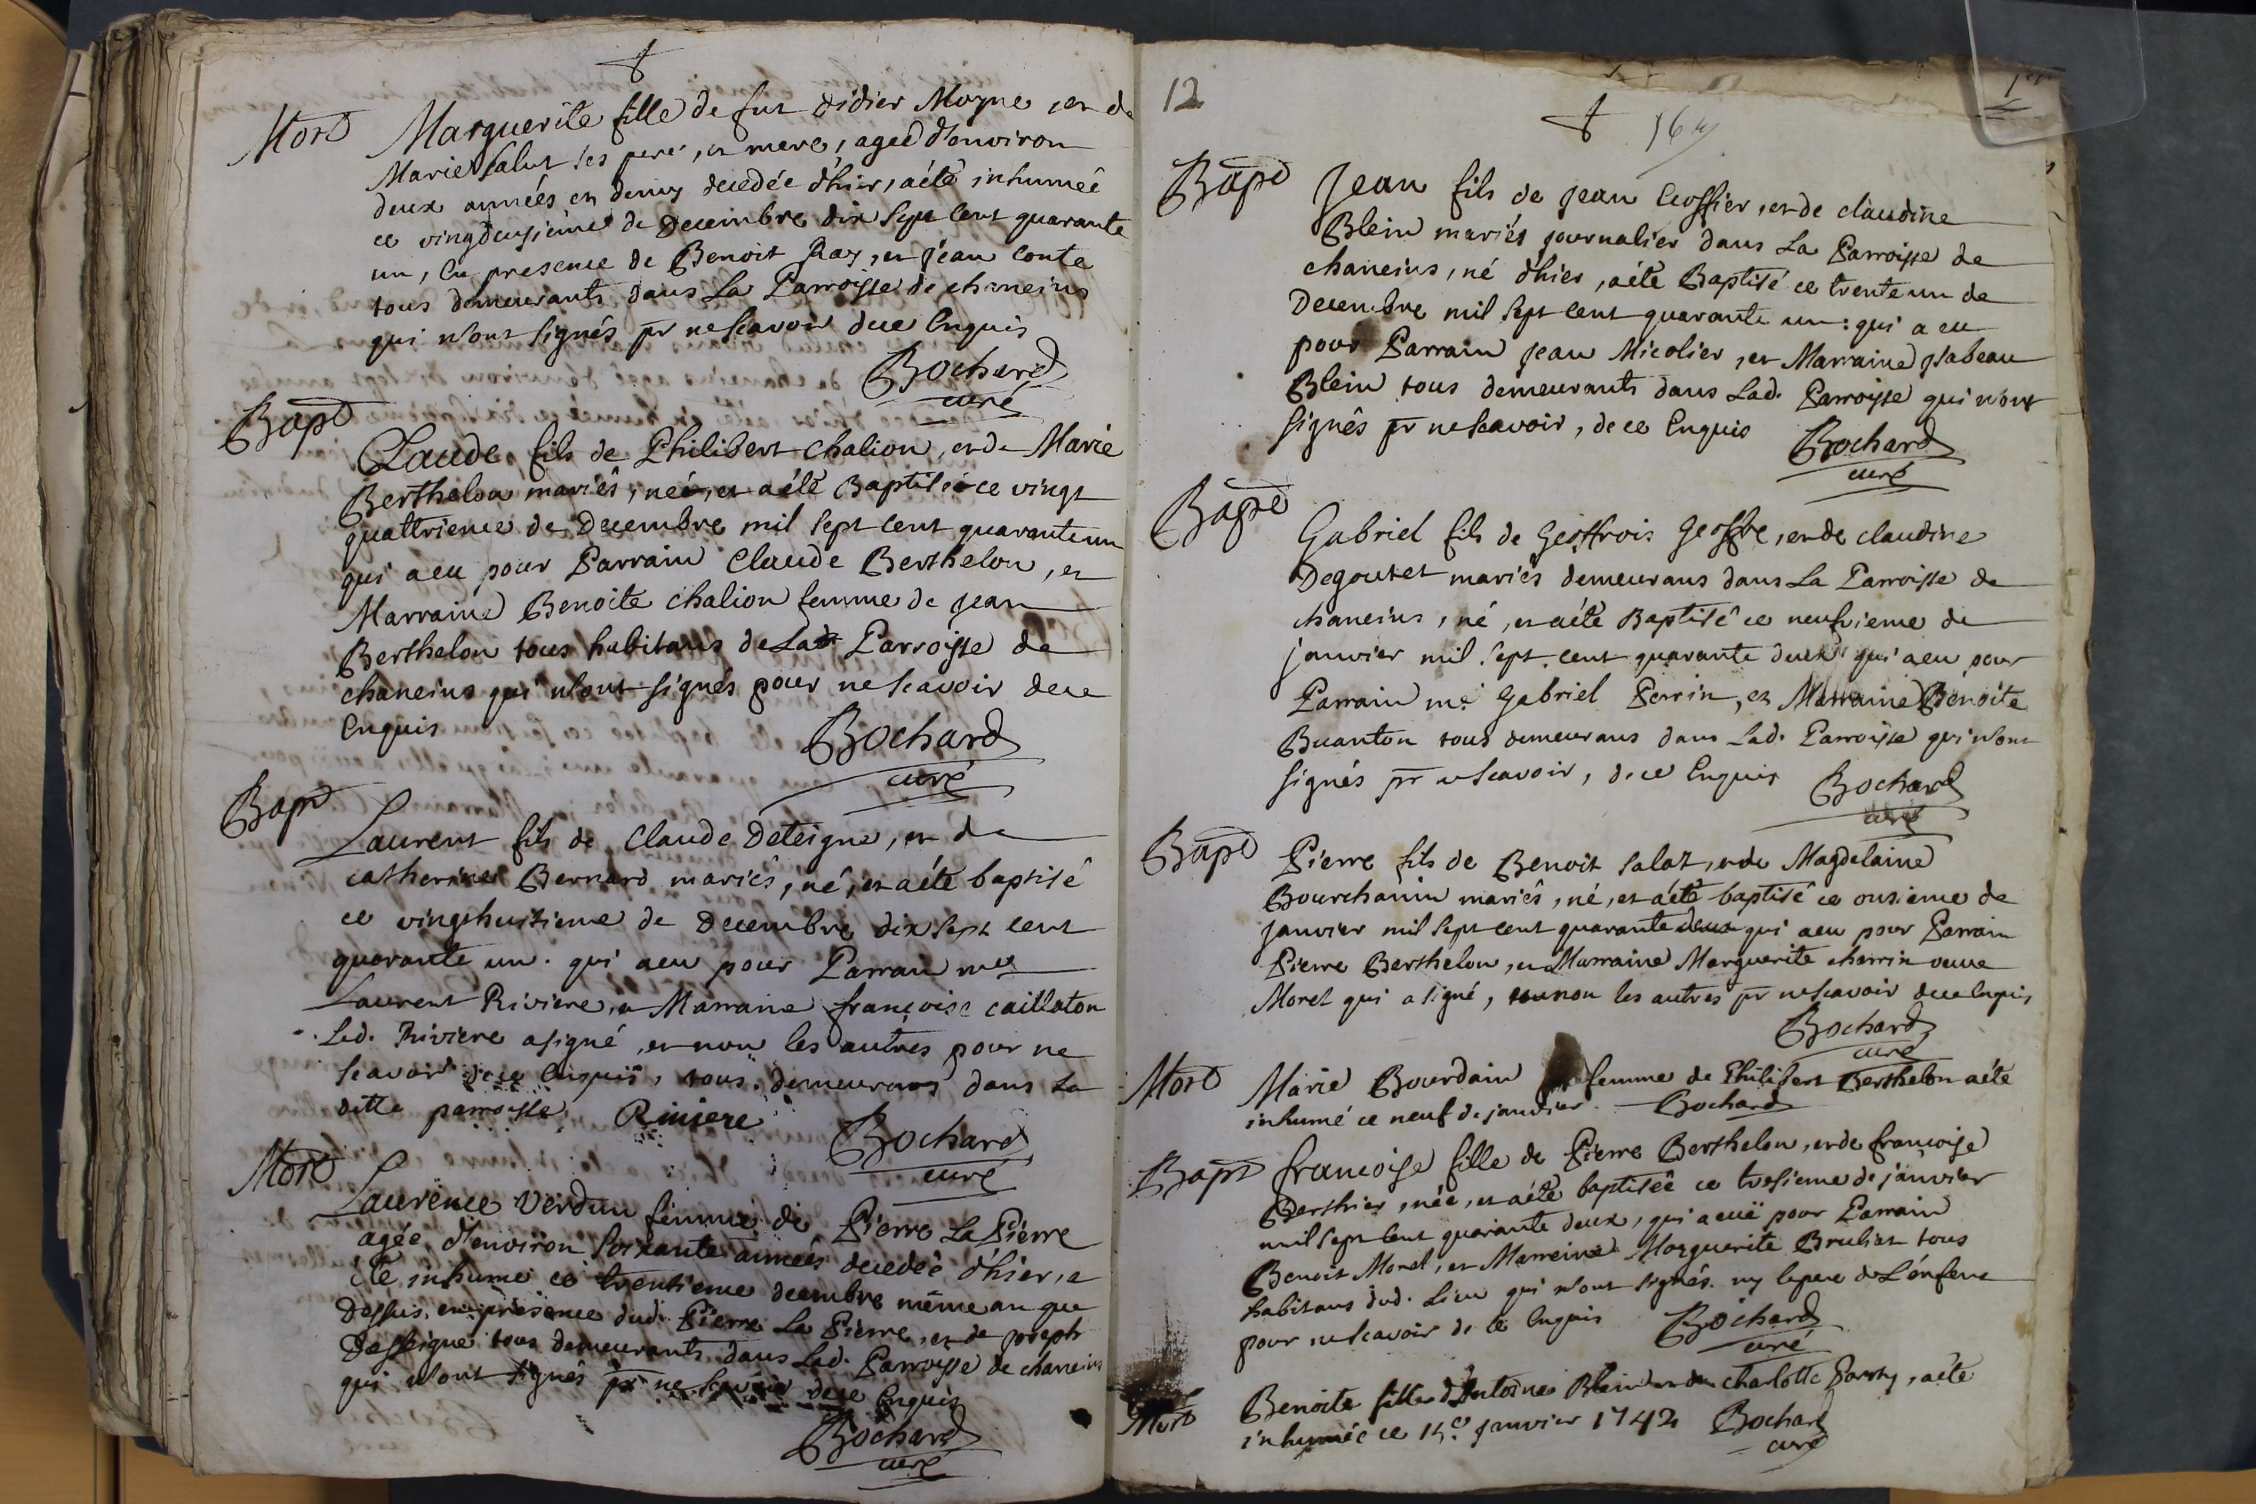 Mort
Marguerite fille de fut didier Moyne, et de
Marie Salut ses pere, et mere, ageé d'environ
deux anneés et demy decedée d'hier, a été inhumeé
ce vingdeusieme de Decembre dix sept cent quarante
un, en presence de Benoit Ray, et Jean Conte
tous demeurants dans La Parroisse de chaneins
qui n'ont signés pr ne scavoir de ce Enquis
Bochard
curé
Bapt
Claude fils de Philibert chalion, et de Marie
Berthelon mariés, né, et a été Baptisé ce vingt
quattrieme de Decembre mil sept cent quarante un
qui a eu pour Parrain Claude Berthelon, et
Marraine Benoite chalion femme de Jean
Berthelon tous habitans de Lad Parroisse de
chaneins qui n'ont signés pour ne scavoir de ce
Enquis
Bochard
curé
Bapt
Laurent fils de Claude Deteigne, et de
catherine Bernard mariés, né, et a été baptisé
ce vingthuitieme de Decembre dix sept cent
quarante un. qui a eu pour Parrain me
Laurent Riviere, et Marraine françoise caillaton
Led. Riviere a signé, et non les autres pour ne
scavoir de ce Enquis, tous demeurans dans La
ditte parroisse. Riviere
Bochard
curé
Mort
Laurence Verdun femme de Pierre La Pierre
agée d'environ soixante anneés decedeé d'hier, a
été inhumé ce trentieme decembre même an que
dessus, en presence dud. Pierre La Pierre, et de joseph
Desseigne tous demeurants dans Lad. Parroisse de chaneins
qui n'ont signés pr ne scavoir de ce Enquis
Bochard
curé
12
164
1er
Bapt
Jean fils de Jean Crossier, et de claudine
Blein mariés journalier dans La Parroisse de
chaneins, né d'hier, a été Baptisé ce trente un de
Decembre mil sept cent quarante un: qui a eu
pour Parrain Jean Micolier, et Marraine ysabeau
Blein tous demeurants dans Lad. Parroisse qui n'ont
signés pr ne scavoir, de ce Enquis
Bochard
curé
Bapt
Gabriel fils de Geoffrois Geoffre, et de claudine
Degoutet mariés demeurans dans La Parroisse de
chaneins, né, et a été Baptisé ce neufvieme de
janvier mil sept cent quarante deux qui a eu pour
Parrain me Gabriel Perrin, et Marraine Benoite
Buanton tous demeurans dans Lad. Parroisse qui n'ont
signés pr ne scavoir, de ce Enquis
Bochard
curé
Bapt
Pierre fils de Benoit salaz, et de Magdelaine
Bourchanin mariés, né, et a été baptisé ce onsieme de
janvier mil sept cent quarante deux qui a eu pour Parrain
Pierre Berthelon, et Marraine Marguerite charrin veuve
Morel qui a signé, et non les autres pr ne scavoir de ce Enquis
Bochard
curé
Mort
Marie Bourdain femme de Philibert Berthelon a été
inhumé ce neuf de janvier. Bochard
Bapt
francoise fille de Pierre Berthelon, et de francoise
Berthier, née, et a été baptiseé ce tresieme de janvier
mil sept cent quarante deux, qui a eue pour Parrain
Benoit Morel, et Marreine Marguerite Brulier tous
habitans dud. Lieu qui n'ont signés ny le pere de L'enfent
pour ne scavoir de ce Enquis
Bochard
curé
Mort
Benoite fille d'Antoine Blein et de charlotte, a été
inhumée ce janvier 1742 Bochard
curé